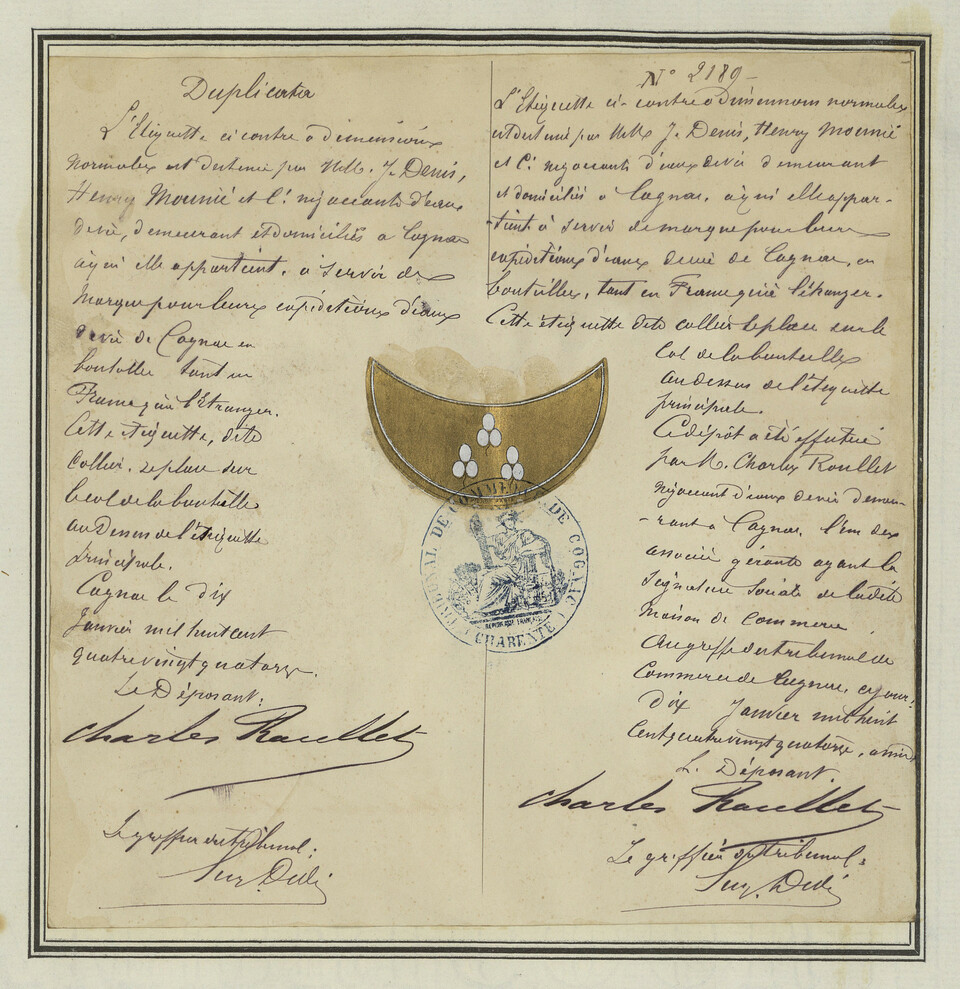 Duplicata
L'Etiquette ci contre à dimensions
normales est destinée par MM. J. Denis,
Henry Mounié et Cie négociants d'eaux
devie, demeurant et domiciliés à Cognac
à qui elle appartient, à servir de
Marque pour leurs expéditions d'eaux
devie de Cognac en
bouteilles tant en
France qu'à l'Etranger.
Cette etiquette, dite
Collier, se place sur
le col de la bouteille
au Dessus de l'étiquette
principale.
Cognac le dix
Janvier mil huit cent
quatre vingt quatorze.
Le Déposant:
Charles Roullet
Le greffier du tribunal:
N° 2189-
L'Etiquette ci-contre à dimensions normales
est destinée par MM. J. Denis, Henry Mounié
et Cie négociants d'eaux devie demeurant
et domiciliés à Cognac, à qui elle appar-
-tient à servir de marque pour leurs
expéditions d'eaux devie de Cognac, en
bouteilles, tant en France qu'à l'étranger.
Cette étiquette dite collier se place sur le
Col de la bouteille
au dessus de l'étiquette
principale.
Ce dépôt a été effectué
par M. Charles Roullet
négociant d'eaux devie demeu-
-rant à Cognac, l'un des
associés gérants ayant la
signature sociale de ladite
Maison de Commerce.
Au greffe du tribunal de
Commerce de Cognac, ce jour
dix Janvier mil huit
Cent quatre vingt quatorze, à midi
Le Déposant.
Charles Roullet
Le greffier du tribunal:
TRIBUNAL DE COMMERCE DE COGNAC
REPUBLIQUE FRANÇAISE
(CHARENTE)